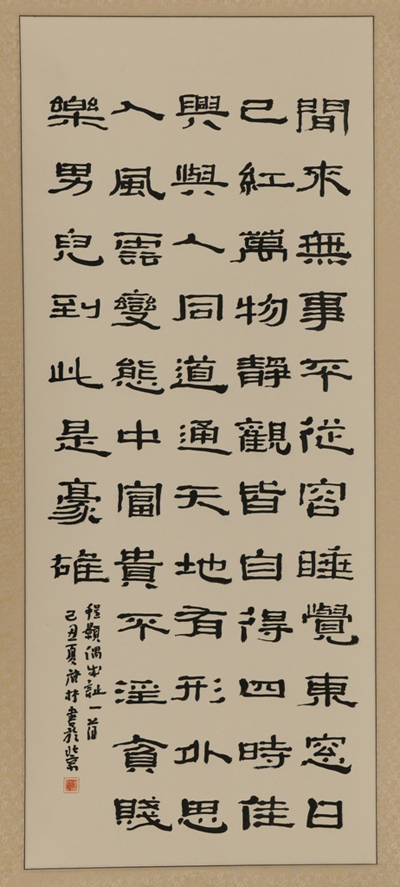 間來無事不從容睡覺東窓日
已紅萬物靜觀皆自得四時佳
興與人同道通天地有形外思
入風雲變態中富貴不淫貧賤
樂男兒到此是豪雄
程顥偶成詩一首
己丑夏書於北京